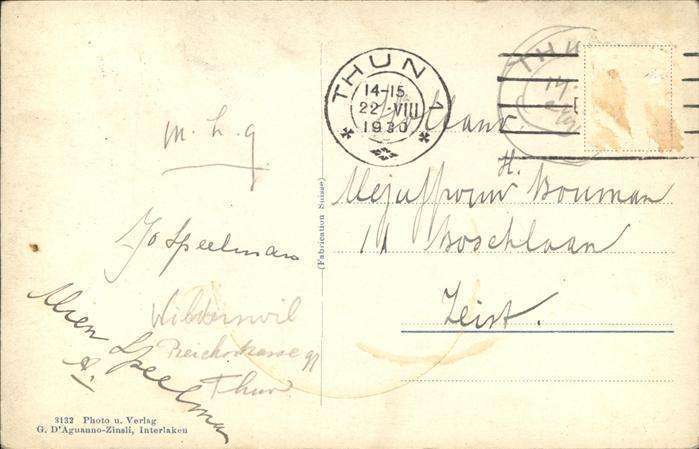 THUN 1
14-15
22.VIII
1930
THU
m.h.g.
Jo Speelman
Wilderswil
Thun
Mien Speelman
3132 Photo u. Verlag
G. D'Aguanno-Zinsli, Interlaken
(Fabrication Suisse)
Holland.
Mejuffrouw H. Bouman
11 Boschlaan
Zeist.